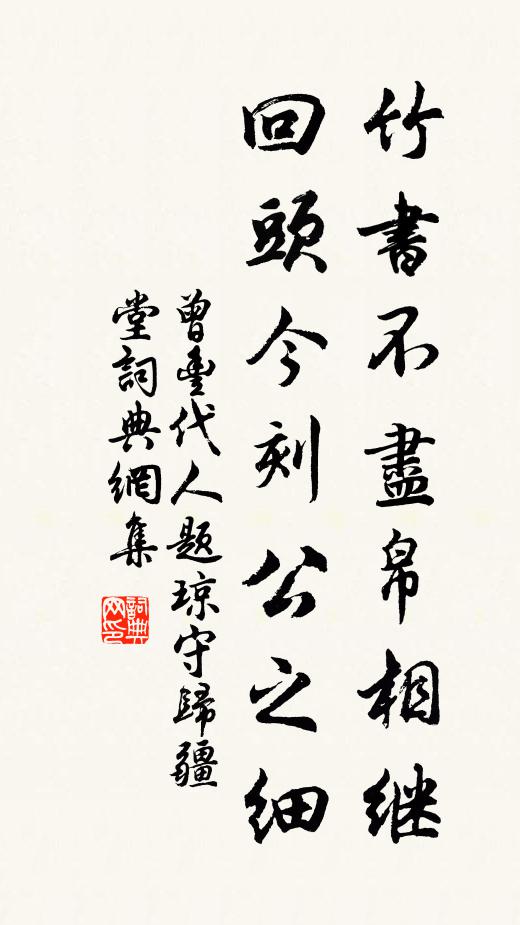 竹書不盡帛相継
回頭今刻公之細
曾豊代人題琼守歸疆
堂詞典網集
詞典网印